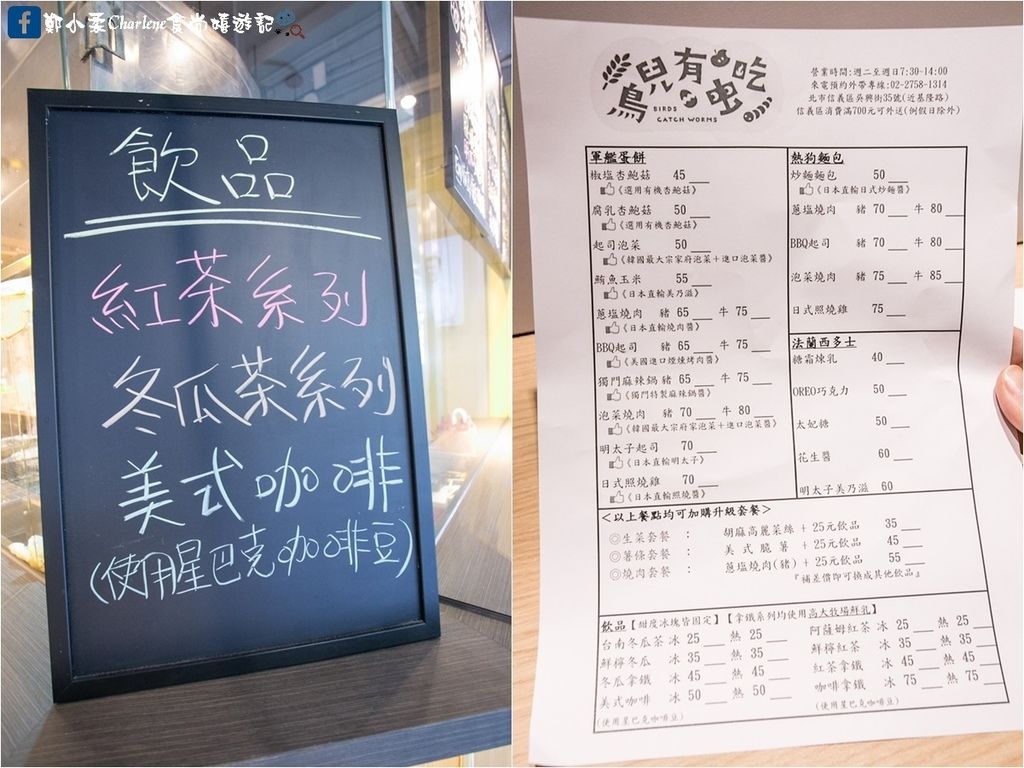 鄭小柔Charlene食尚嬉遊記
飲品
紅茶系列
冬瓜茶系列
美式咖啡
(使用星巴克咖啡豆)
鳥兒有蟲吃
BIRDS
CATCH WORMS
營業時間:週二至週日7:30-14:00
來電預約外帶專線:02-2758-1314
北市信義區吳興街35號(近基隆路)
信義區消費滿700元可外送(例假日除外)
軍艦蛋餅
椒塩杏鮑菇 45
《選用有機杏鮑菇》
腐乳杏鮑菇 50
《選用有機杏鮑菇》
起司泡菜 50
《韓國最大宗家府泡菜+進口泡菜醬》
鮪魚玉米 55
《日本直輸美乃滋》
蔥塩燒肉 豬 65 牛 75
《日本直輸燒肉醬》
BBQ起司 豬 65 牛 75
《美國進口煙燻烤肉醬》
獨門麻辣鍋 豬 65 牛 75
《獨門特製麻辣鍋醬》
泡菜燒肉 豬 70 牛 80
《韓國最大宗家府泡菜+進口泡菜醬》
明太子起司 70
《日本直輸明太子》
日式照燒雞 70
《日本直輸照燒醬》
熱狗麵包
炒麵麵包 50
《日本直輸日式炒麵醬》
蔥塩燒肉 豬 70 牛 80
BBQ起司 豬 70 牛 80
泡菜燒肉 豬 75 牛 85
日式照燒雞 75
法蘭西多士
糖霜煉乳 40
OREO巧克力 50
太妃糖 50
花生醬 60
明太子美乃滋 60
<以上餐點均可加購升級套餐>
◎生菜套餐 : 胡麻高麗菜絲 + 25元飲品 35
◎薯條套餐 : 美式脆薯 + 25元飲品 45
◎燒肉套餐 : 蔥塩燒肉(豬) + 25元飲品 55
『補差價即可換成其他飲品』
飲品【甜度冰塊皆固定】【拿鐵系列均使用高大牧場鮮乳】
台南冬瓜茶 冰 25 熱 25 阿薩姆紅茶 冰 25 熱 25
鮮檸冬瓜 冰 35 熱 35 鮮檸紅茶 冰 35 熱 35
冬瓜拿鐵 冰 45 熱 45 紅茶拿鐵 冰 45 熱 45
美式咖啡 冰 50 熱 50 咖啡拿鐵 冰 75 熱 75
(使用星巴克咖啡豆) (使用星巴克咖啡豆)